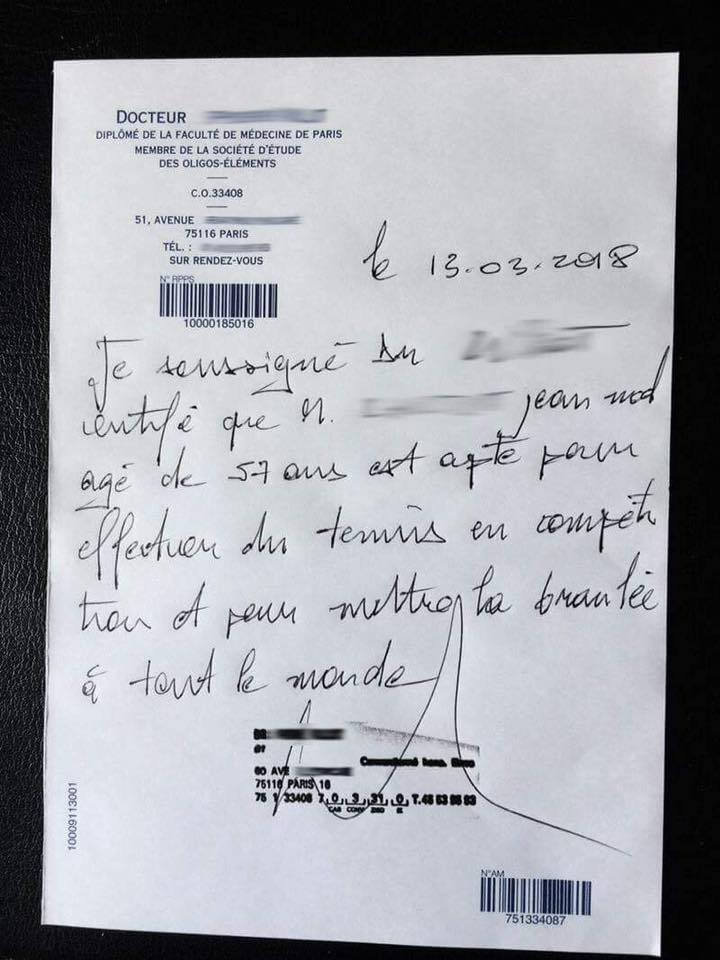 DOCTEUR
DIPLÔMÉ DE LA FACULTÉ DE MÉDECINE DE PARIS
MEMBRE DE LA SOCIÉTÉ D'ÉTUDE
DES OLIGOS-ÉLÉMENTS
C.O.33408
51, AVENUE
75116 PARIS
TÉL. :
SUR RENDEZ-VOUS
N° RPPS
10000185016
le 13.03.2018
Je soussigné Dr
certifie que M. jean noel
agé de 57 ans est apte pour
effectuer du tennis en compéti
tion et peux mettre la branlée
à tout le monde
60 AVE
75116 PARIS 16
75 1 33408 7 0 3 31 0
CAB CONV ZISD IK
10009113001
N°AM
751334087